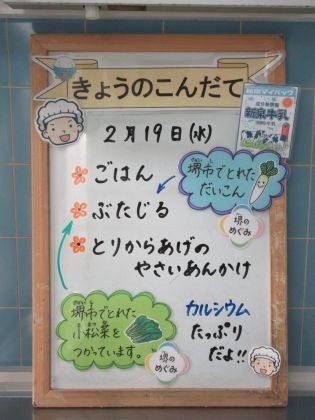 きょうのこんだて
2月19日(水)
ごはん
ぶたじる
とりからあげの
やさいあんかけ
堺市でとれた
だいこん
堺の
めぐみ
堺市でとれた
小松菜を
つかっています。
堺の
めぐみ
カルシウム
たっぷり
だよ!!
新泉牛乳